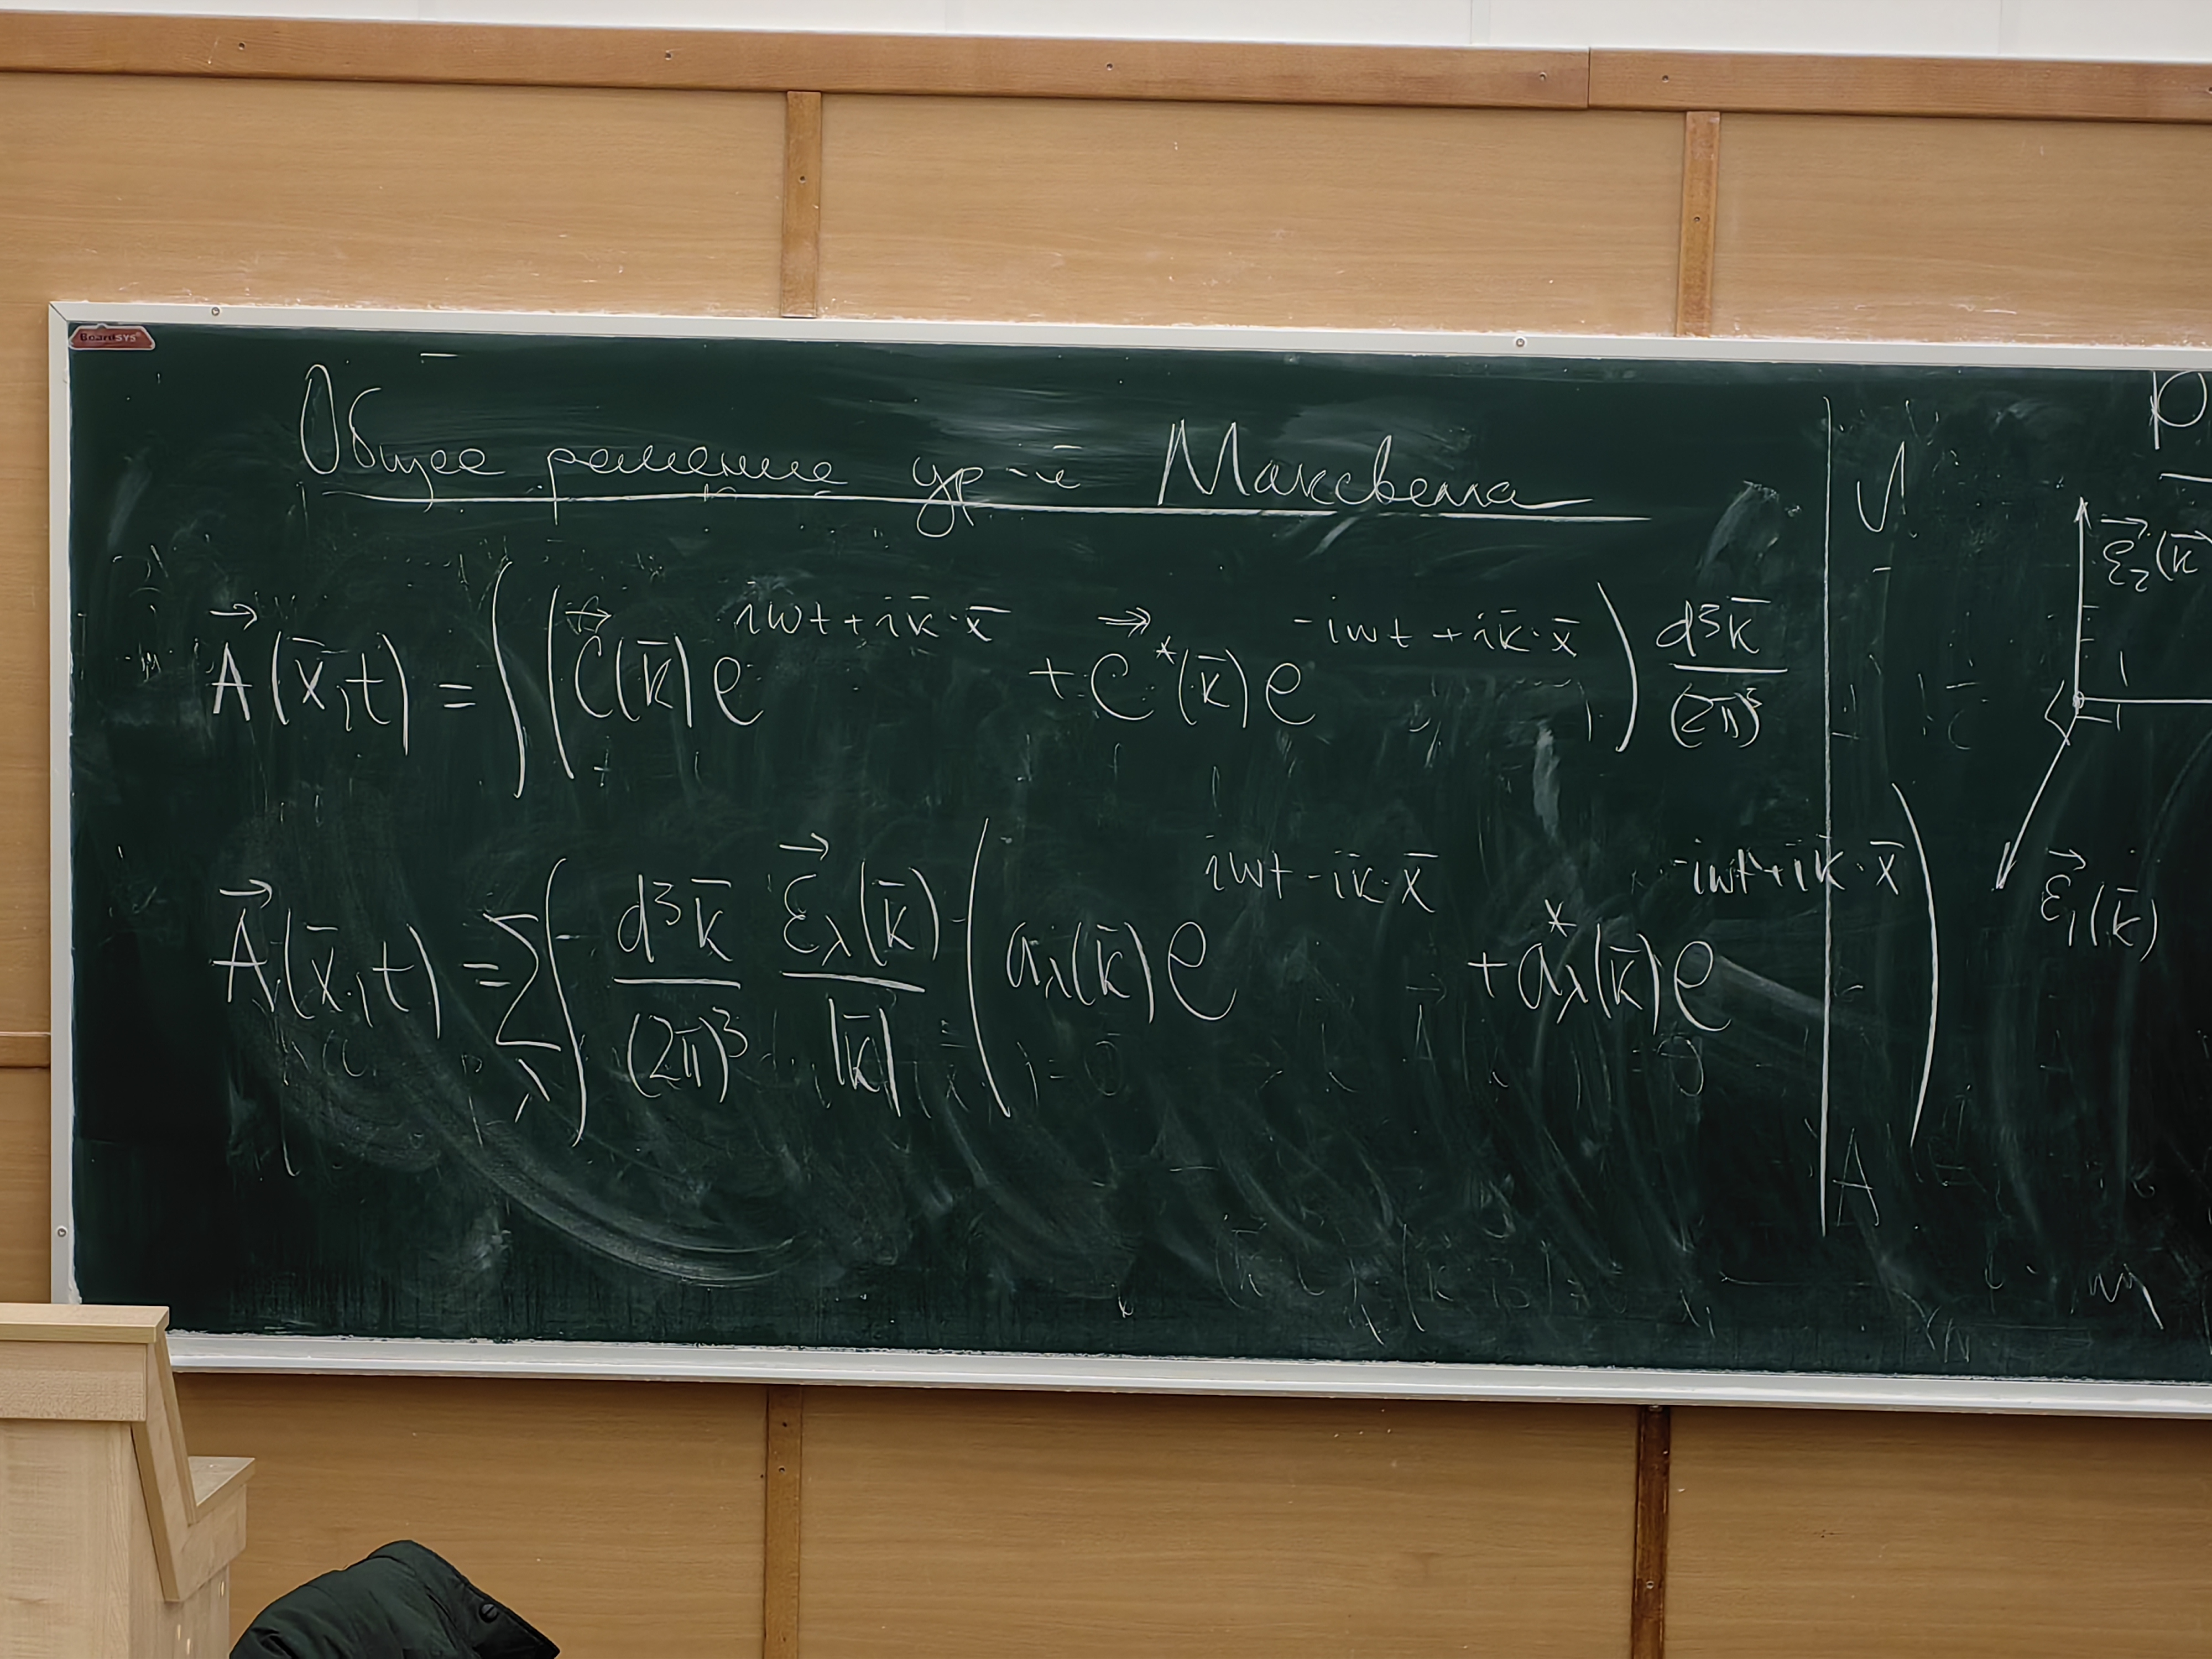 BoardSYS
Общее решение ур-й Максвелла
$\vec{A}(\bar{x},t) = \int \left( \vec{C}(\bar{k}) e^{i\omega t + i\bar{k}\cdot\bar{x}} + \vec{C}^*(\bar{k}) e^{-i\omega t + i\bar{k}\cdot\bar{x}} \right) \frac{d^3\bar{k}}{(2\pi)^3}$
$\vec{A}(\bar{x},t) = \sum_\lambda \int \frac{d^3\bar{k}}{(2\pi)^3} \frac{\vec{\varepsilon}_\lambda(\bar{k})}{|\bar{k}|} \left( a_\lambda(\bar{k}) e^{i\omega t - i\bar{k}\cdot\bar{x}} + a^*_\lambda(\bar{k}) e^{-i\omega t + i\bar{k}\cdot\bar{x}} \right)$
$\vec{\varepsilon}_2(\bar{k}$
$\vec{\varepsilon}_1(\bar{k})$